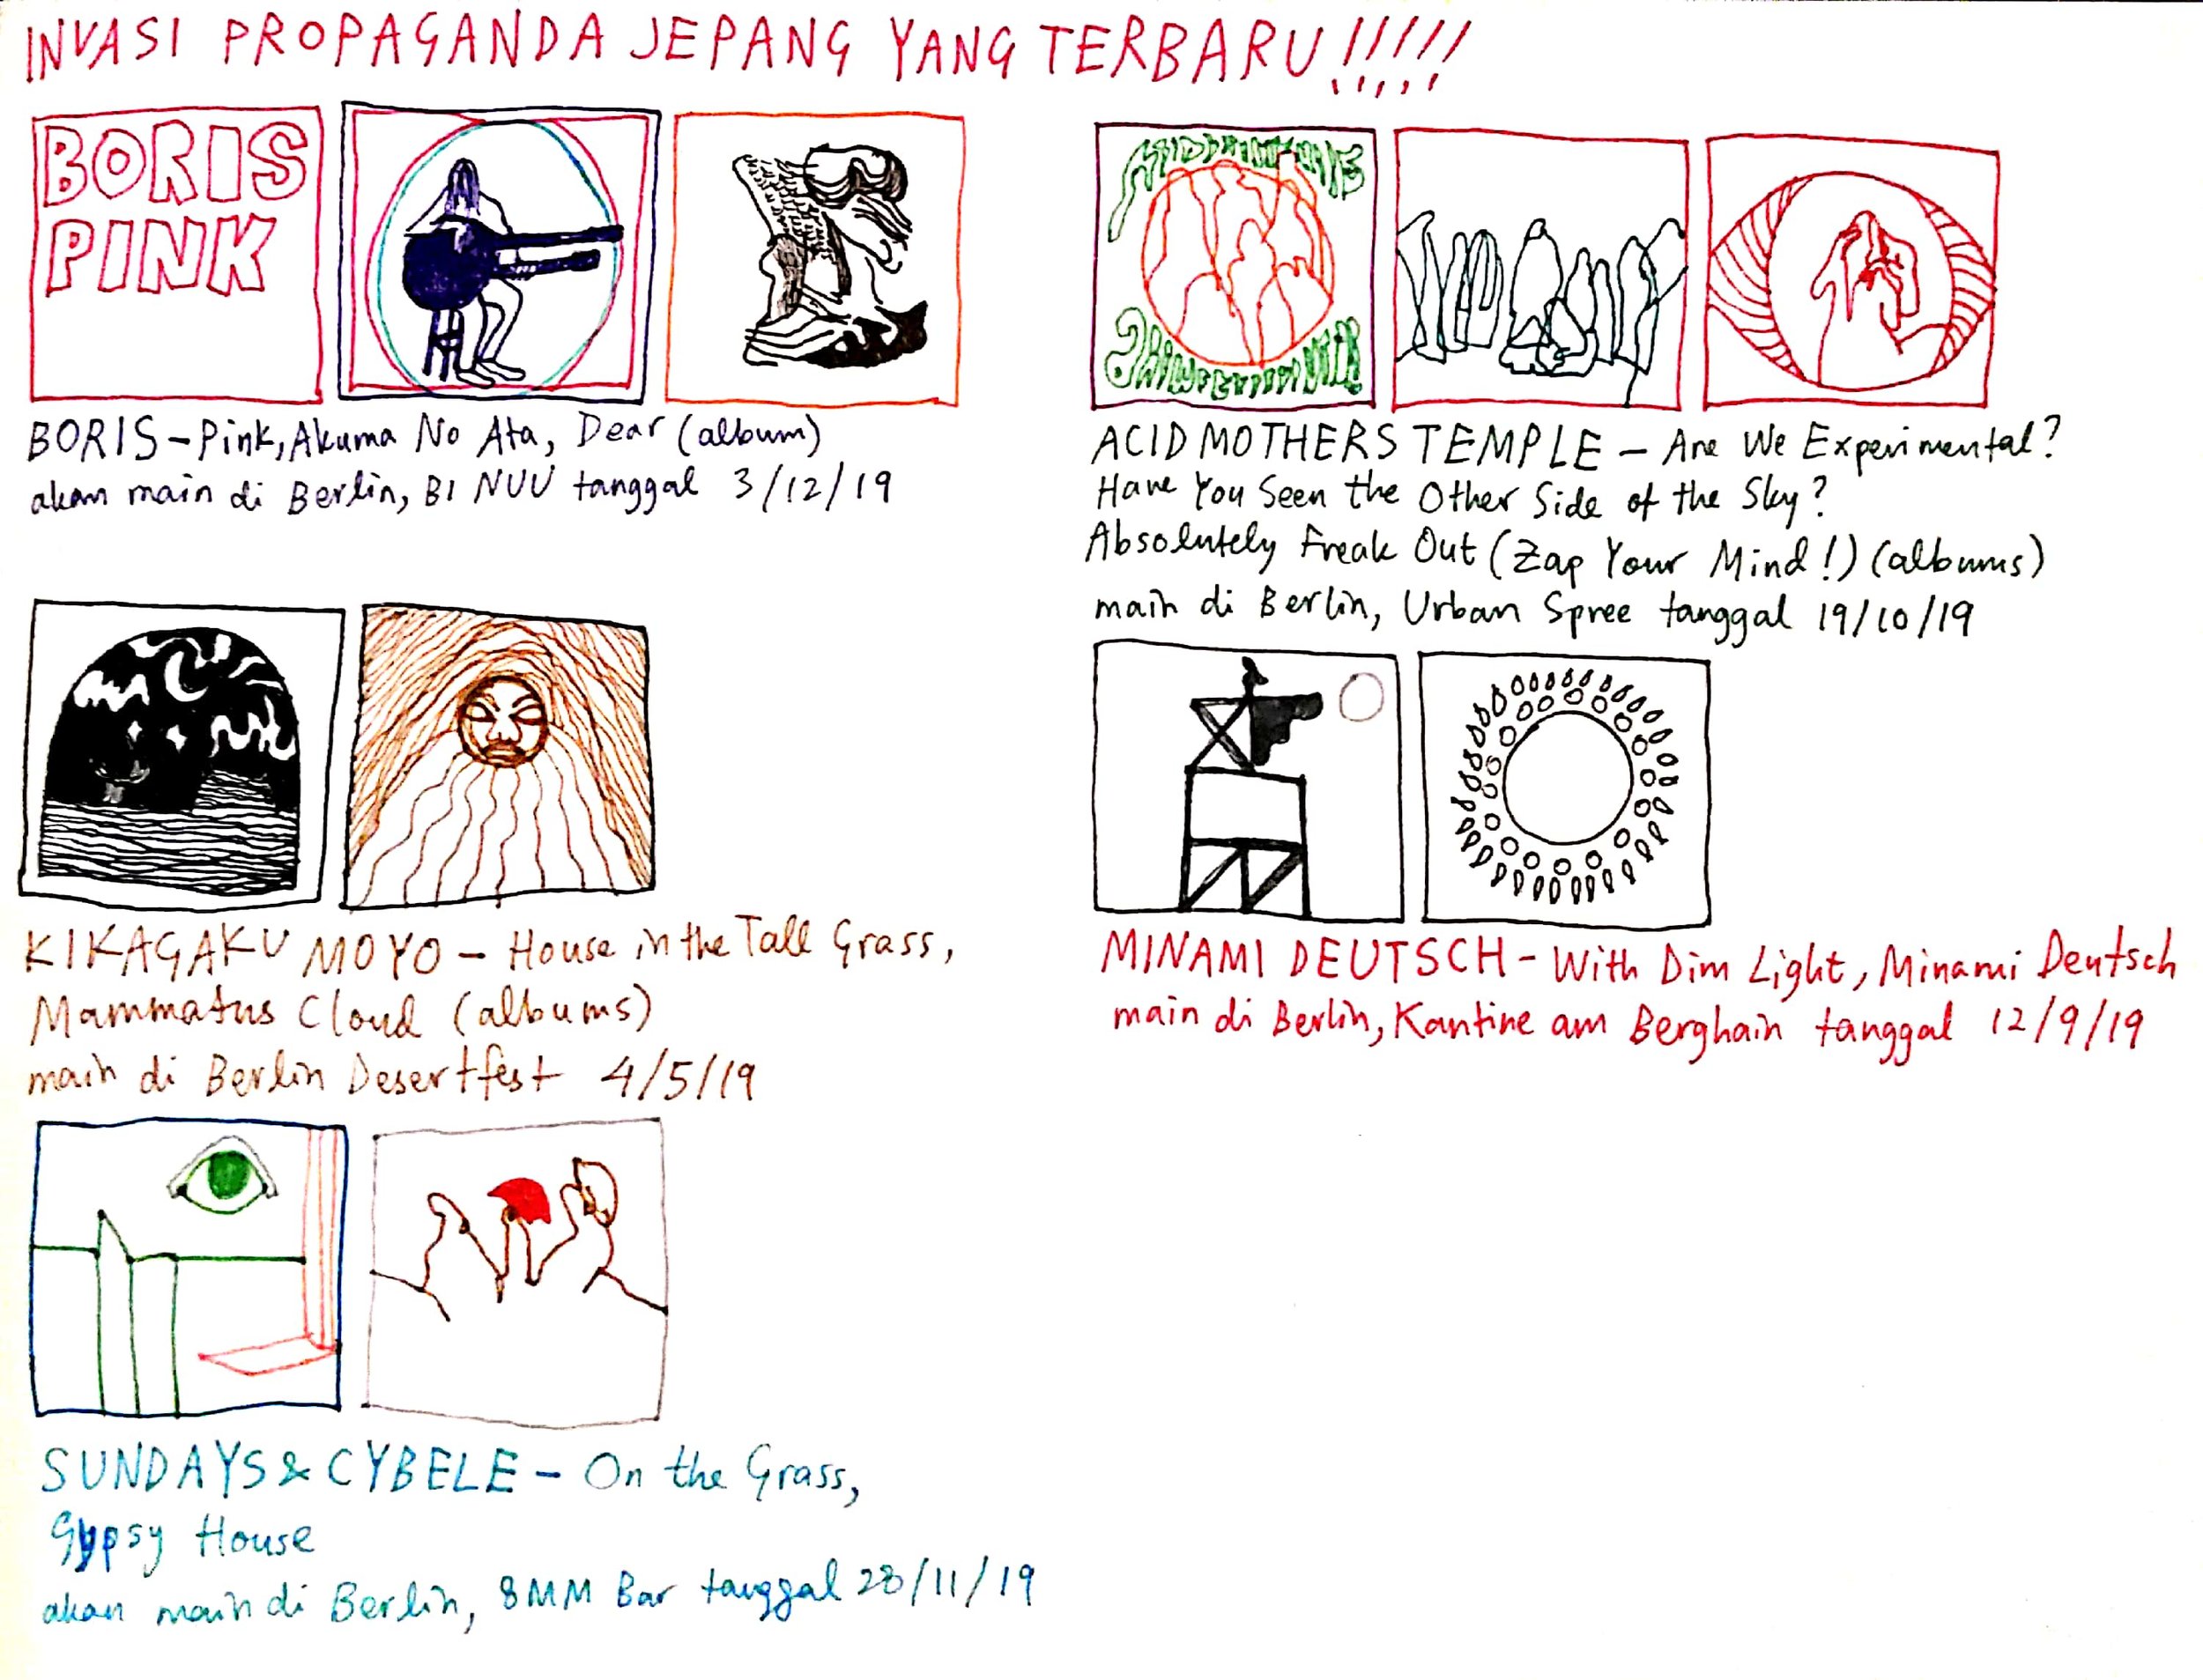 INVASI PROPAGANDA JEPANG YANG TERBARU!!!!!
BORIS
PINK
BORIS – Pink, Akuma No Ata, Dear (album)
akan main di Berlin, BI NUU tanggal 3/12/19
ACID MOTHERS TEMPLE – Are We Experimental?
Have You Seen the Other Side of the Sky?
Absolutely Freak Out (Zap Your Mind!) (albums)
main di Berlin, Urban Spree tanggal 19/10/19
KIKAGAKU MOYO – House in the Tall Grass,
Mammatus Cloud (albums)
main di Berlin Desertfest 4/5/19
MINAMI DEUTSCH – With Dim Light, Minami Deutsch
main di Berlin, Kantine am Berghain tanggal 12/9/19
SUNDAYS & CYBELE – On the Grass,
Gypsy House
akan main di Berlin, 8MM Bar tanggal 28/11/19